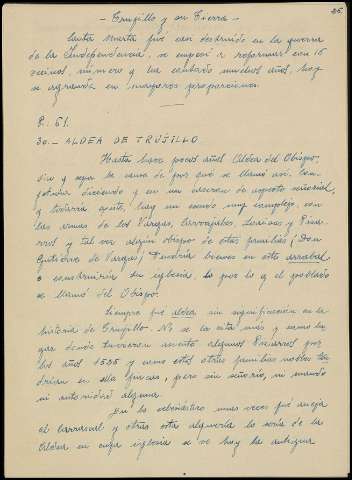 25
- Trujillo y su Tierra -
Santa Marta fue casi destruida en la guerra
de la Independencia, se empezó a reformar con 16
vecinos, número y ha contado muchos años, hoy
se agranda en mayores proporciones.
P. 61.
30.- ALDEA DE TRUJILLO
Hasta hace pocos años Aldea del Obispo,
y la causa de por qué se llamó así,
diciendo y en un caseron de aspecto señorial,
y todavía existe, hay un escudo muy complejo, con
las armas de los Vargas, Carvajales, Loaisas y Piza-
rros y tal vez algún obispo de estas familias (Don
Gutierre de Vargas) tendría bienes en este arrabal
o construiría su iglesia, lo que y el poblado
se llamó del Obispo.
Siempre fue aldea sin significación en la
historia de Trujillo. No se la cita más y como lu-
gar donde tuvieron asiento algunos Pizarros por
los años 1535 y como estos otras familias nobles ten-
drían en ella fincas, pero sin señorío, ni mando
ni autoridad alguna.
En lo eclesiástico unas veces fue aneja
al carrascal y otras esta alquería lo sería de la
Aldea en cuya iglesia se ve hoy la antigua